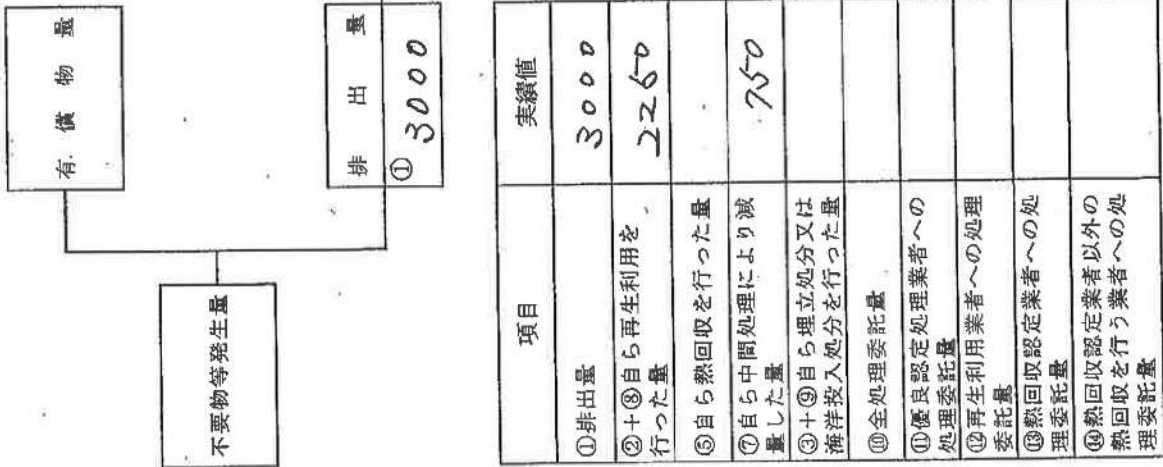 有 償 物 量
不要物等発生量
排 出 量
① 3000
項目 実績値
①排出量 3000
②+⑧自ら再生利用を
行った量 2250
⑤自ら熱回収を行った量
⑦自ら中間処理により減
量した量 750
③+⑨自ら埋立処分又は
海洋投入処分を行った量
⑩全処理委託量
⑪優良認定処理業者への
処理委託量
⑫再生利用業者への処理
委託量
⑬熱回収認定業者への処
理委託量
⑭熱回収認定業者以外の
熱回収を行う業者への処
理委託量